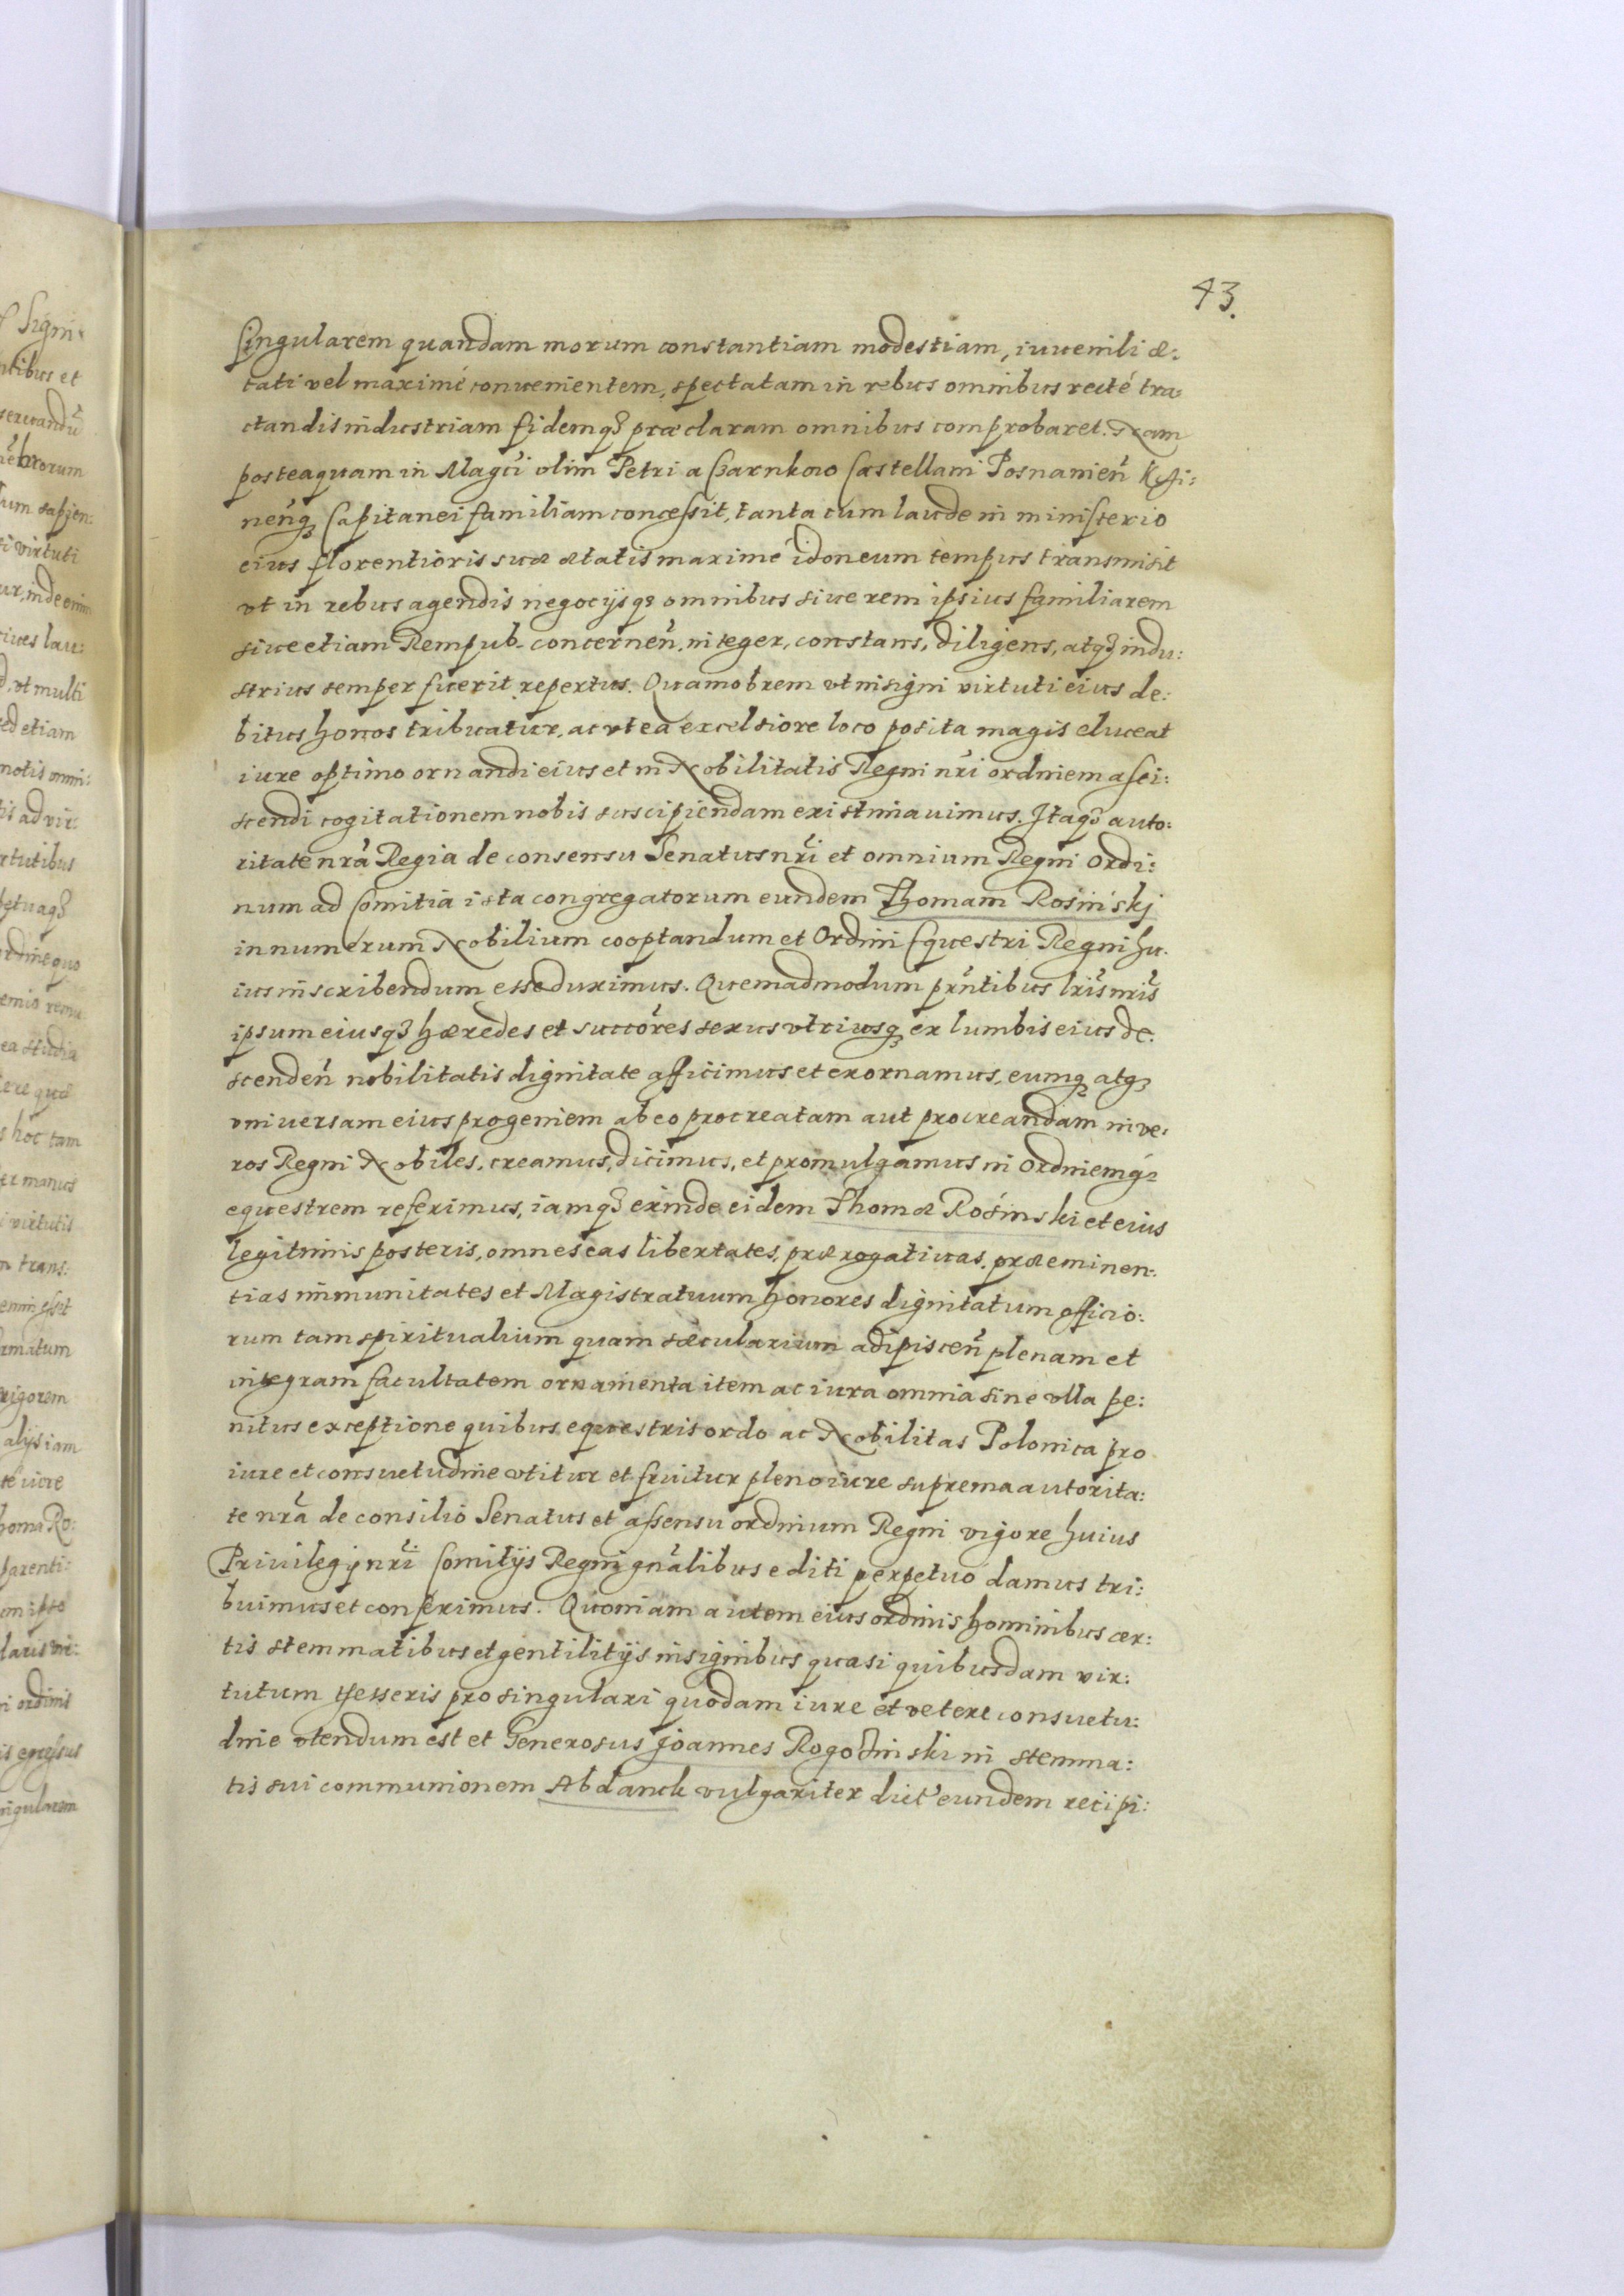 43.
Singularem quandam morum constantiam modestiam, iuuenili æ:
tati vel maximé conuenientem, spectatam in rebus omnibus recté tra:
ctandis industriam fidemq3 præclaram omnibus comprobaret. Nam
posteaquam in Magci olim Petri a Czarnkow Castellani Posnanien̄
nenq3 Capitanei familiam concessit, tanta cum laude in ministerio
eius florentioris suæ ætatis maximé idoneum tempus transmisit
vt in rebus agendis negocijsq3 omnibus siue rem ipsius familiarem
siue etiam Rempub. concernen̄, integer, constans, diligens, atq3 indu:
strius semper fuerit repertus. Quamobrem vt insigni virtuti eius de:
bitus honos tribuatur, ac vt ea excelsiore loco posita magis eluceat
iure optimo ornandi eius et in Nobilitatis Regni nr̄i ordinem asci:
scendi cogitationem nobis suscipiendam existimauimus. Itaq3 auto:
ritate nrā Regia de consensu Senatus nr̄i et omnium Regni Ordi:
num ad Comitia ista congregatorum eundem Thomam Rosińskj
in numerum Nobilium cooptandum et Ordini Equestri Regni hu:
ius inscribendum esse duximus. Quemadmodum prn̄tibus lris̄ nris̄
ipsum eiusq3 hæredes et succōres sexus vtriusq3 ex lumbis eius de:
scenden̄ nobilitatis dignitate afficimus et exornamus, eumq3 atq3
vniuersam eius progeniem ab eo procreatam aut procreandam in ve:
ros Regni Nobiles, creamus, dicimus, et promulgamus in Ordinemq3
equestrem referimus, iamq3 exinde eidem Thomæ Rosinski et eius
legitimis posteris, omnes eas libertates, prærogatiuas, præeminen:
tias immunitates et Magistratuum honores dignitatum officio:
rum tam spiritualium quam sæcularium adipiscen̄ plenam et
integram facultatem ornamenta item ac iura omnia sine vlla pe:
nitus exceptione quibus equestris ordo ac Nobilitas Polonica pro
iure et consuetudine vtitur et fruitur pleno iure suprema autorita:
te nrā de consilio Senatus et assensu ordinum Regni vigore huius
Priuilegij nr̄i Comitijs Regni gnālibus editi perpetuo damus tri:
buimus et conferimus. Quoniam autem eius ordinis hominibus cer:
tis stemmatibus et gentilitijs insignibus quasi quibusdam vir:
tutum tesseris pro singulari quodam iure et vetere consuetu:
dine vtendum est et Generosus Joannes Rogoziński in stemma:
tis sui communionem Abdanck vulgariter dict' eundem recipi: